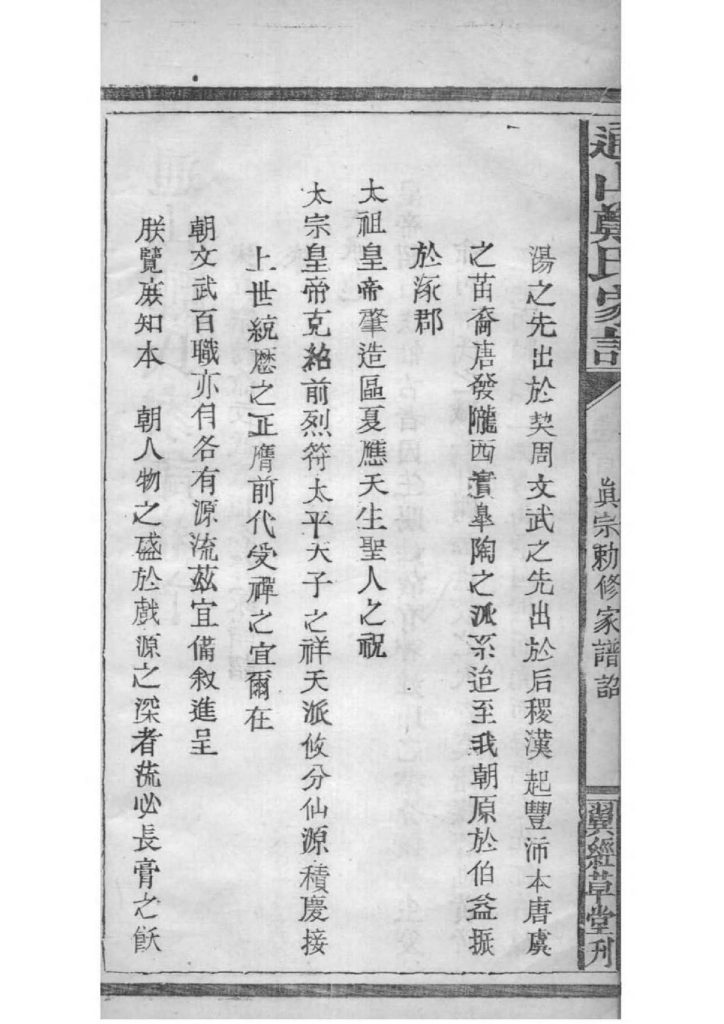 通山鄭氏家譜
眞宗勅修家譜詔
翼經草堂刋
湯之先出於契周文武之先出於后稷漢起豐沛本唐虞
之苗裔唐發隴西實臯陶之派系迨至我朝原於伯益振
於涿郡
太祖皇帝肇造區夏應天生聖人之祝
太宗皇帝克紹前烈符太平天子之祥天派攸分仙源積慶接
上世統歷之正膺前代受禪之宜爾在
朝文武百職亦自各有源流茲宜備敘進呈
朕覽庶知本　朝人物之盛於戲源之深者流必長膏之飫